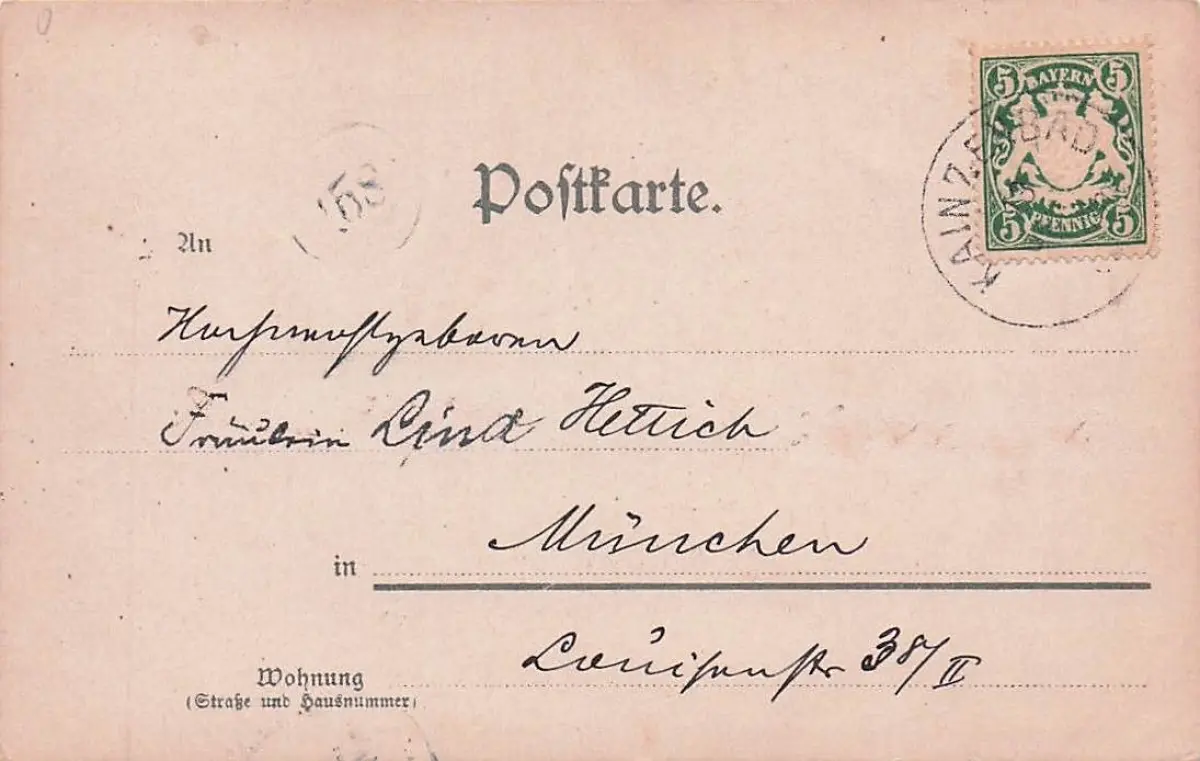 5 BAYERN 5
KAINZENBAD
5 PFENNIG 5
Postkarte.
An
Hochwohlgeboren
Fräulein Lina Hettich
in München
Louisenstr 38/II
Wohnung
(Straße und Hausnummer)